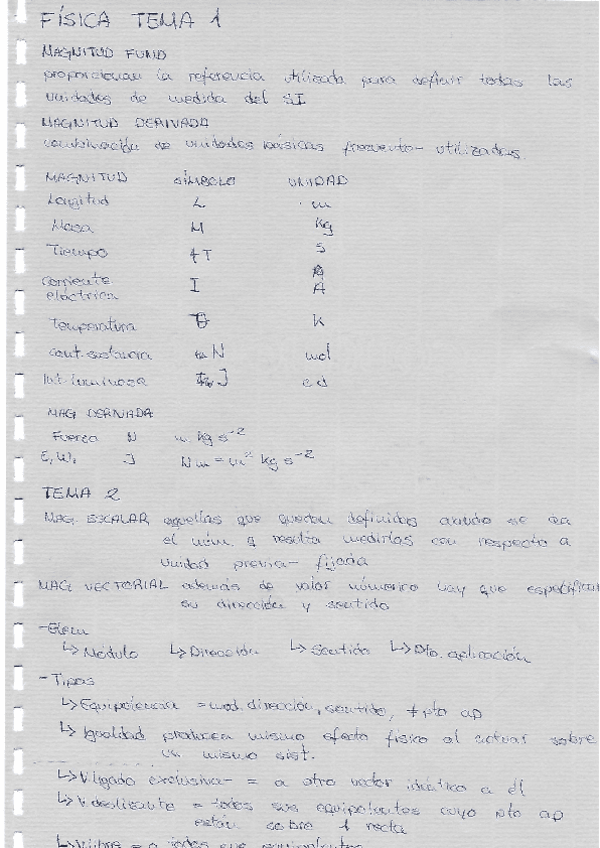 FÍSICA TEMA 1
MAGNITUD FUND
proporcionan la referencia utilizada para definir todas las
unidades de medida del SI
MAGNITUD DERIVADA
combinación de unidades básicas frecuente- utilizadas.
MAGNITUD SÍMBOLO UNIDAD
Longitud L m
Masa M kg
Tiempo t T s
A
corriente I A
eléctrica
Temperatura K
cant. sustancia N mol
Int. luminosa J cd
MAG DERIVADA
Fuerza N m kg s⁻²
E, W, J N m = m² kg s⁻²
TEMA 2
MAG. ESCALAR aquellas que quedan definidas cuando se da
el núm. q resulta medirlas con respecto a
unidad previa- fijada
MAG VECTORIAL además de valor númerico hay que especificar
su dirección y sentido
- Elem
↳ Módulo ↳ Dirección ↳ Sentido ↳ Pto. aplicación
- Tipos
↳ Equipolencia = mod. dirección, sentido, ≠ pto ap
↳ Igualdad producen mismo efecto físico al actuar sobre
un mismo sist.
↳ V. ligado exclusiva- = a otro vector idéntico a él
↳ V. deslizante = todos sus equipolentes cuyo pto ap
están sobre 1 recta
↳ V. libre = a todos sus equipolentes